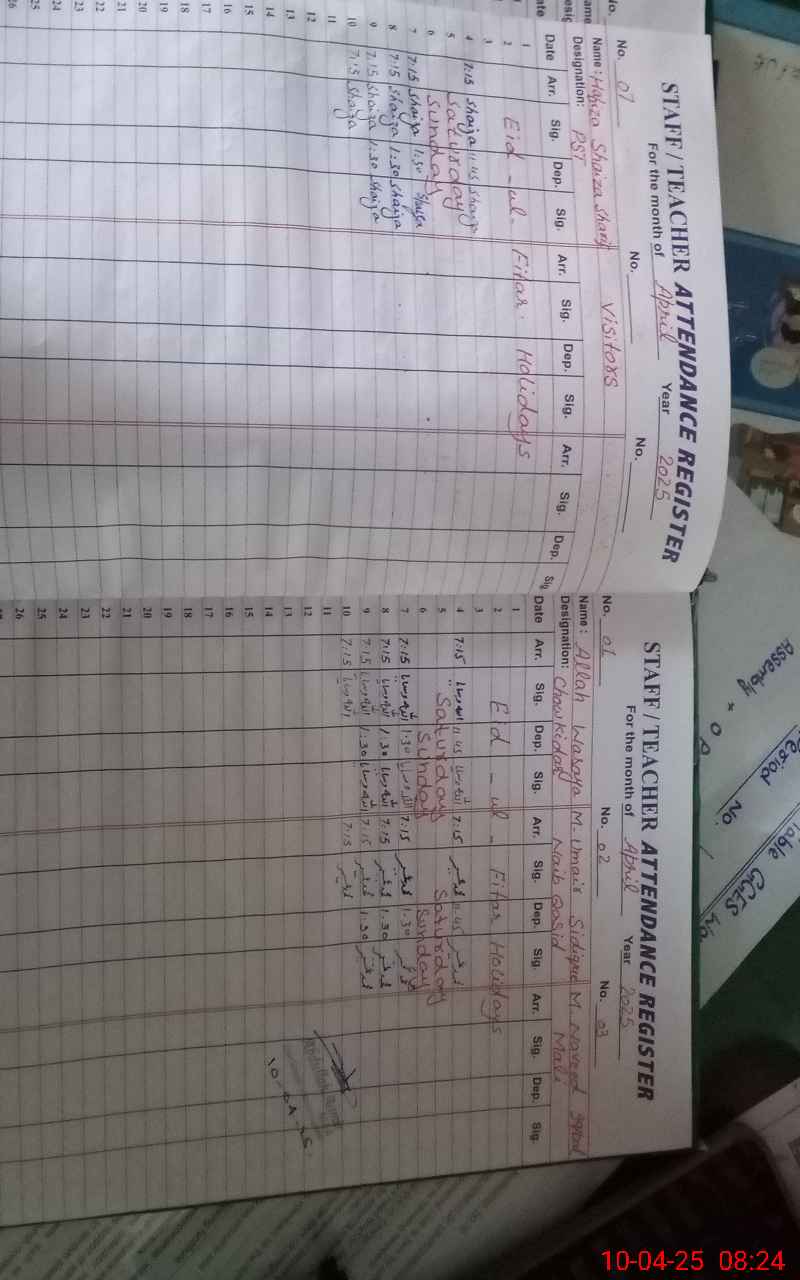 STAFF / TEACHER ATTENDANCE REGISTER
For the month of April Year 2025
No. 07 No. No.
Name: Hafiza Shaiza Sharif Visitors
Designation: PST
Date Arr. Sig. Dep. Sig. Arr. Sig. Dep. Sig. Arr. Sig. Dep. Sig.
1
2 Eid - ul - Fitar Holidays
3
4 7:15 Shaiza 11:45 Shaiza
5 Saturday
6 Sunday
7 7:15 Shaiza 1:30 Shaiza
8 7:15 Shaiza 1:30 Shaiza
9 7:15 Shaiza 1:30 Shaiza
10 7:15 Shaiza
11
12
13
14
15
16
17
18
19
20
21
22
23
24
25
26
STAFF / TEACHER ATTENDANCE REGISTER
For the month of April Year 2025
No. 01 No. 02 No. 03
Name: Allah Wasaya M. Umair Sidique M. Naveed Iqbal
Designation: Chowkidar Naib Qasid Mali
Date Arr. Sig. Dep. Sig. Arr. Sig. Dep. Sig. Arr. Sig. Dep. Sig.
1
2 Eid - ul - Fitar Holidays
3
4 7:15 اللہ وسایا 11:45 اللہ وسایا 7:15 11:45
5 Saturday Saturday
6 Sunday Sunday
7 7:15 اللہ وسایا 1:30 اللہ وسایا 7:15 1:30
8 7:15 اللہ وسایا 1:30 اللہ وسایا 7:15 1:30
9 7:15 اللہ وسایا 1:30 اللہ وسایا 7:15 1:30
10 7:15 اللہ وسایا 7:15
11
12
13
14
15
16
17
18
19
20
21
22
23
24
25
26
10-04-25
Assembly
Period No.
Table GGES
10-04-25 08:24